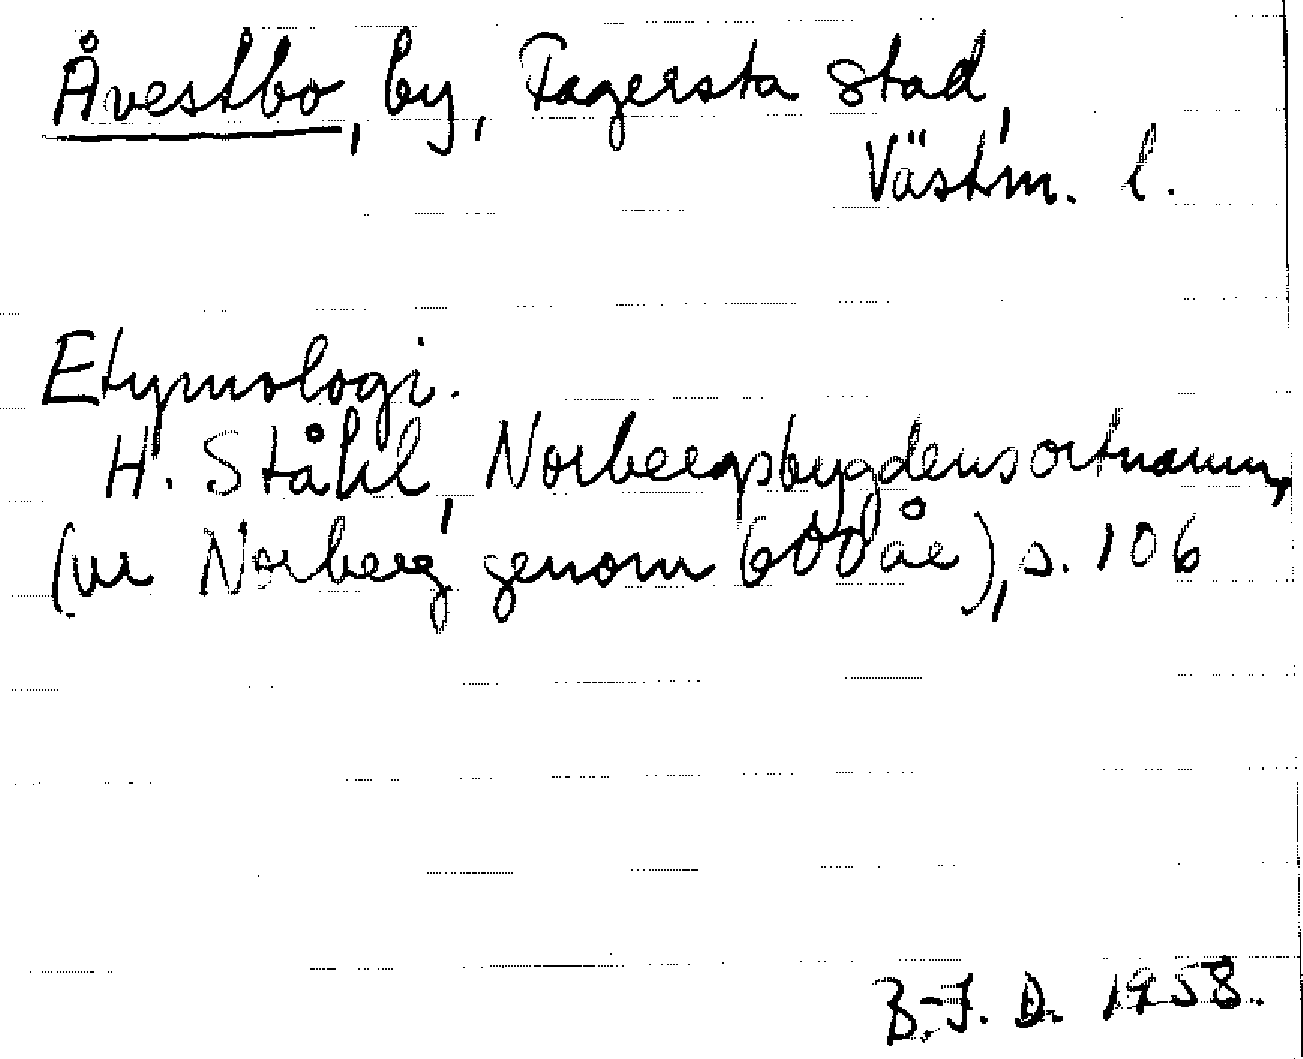 Åvestbo, by, Fagersta stad,
Västm. l.
Etymologi.
H. Ståhl, Norbergsbygdens ortnamn,
(ur Norberg genom 600 år), s. 106
B.-J. D. 1958.